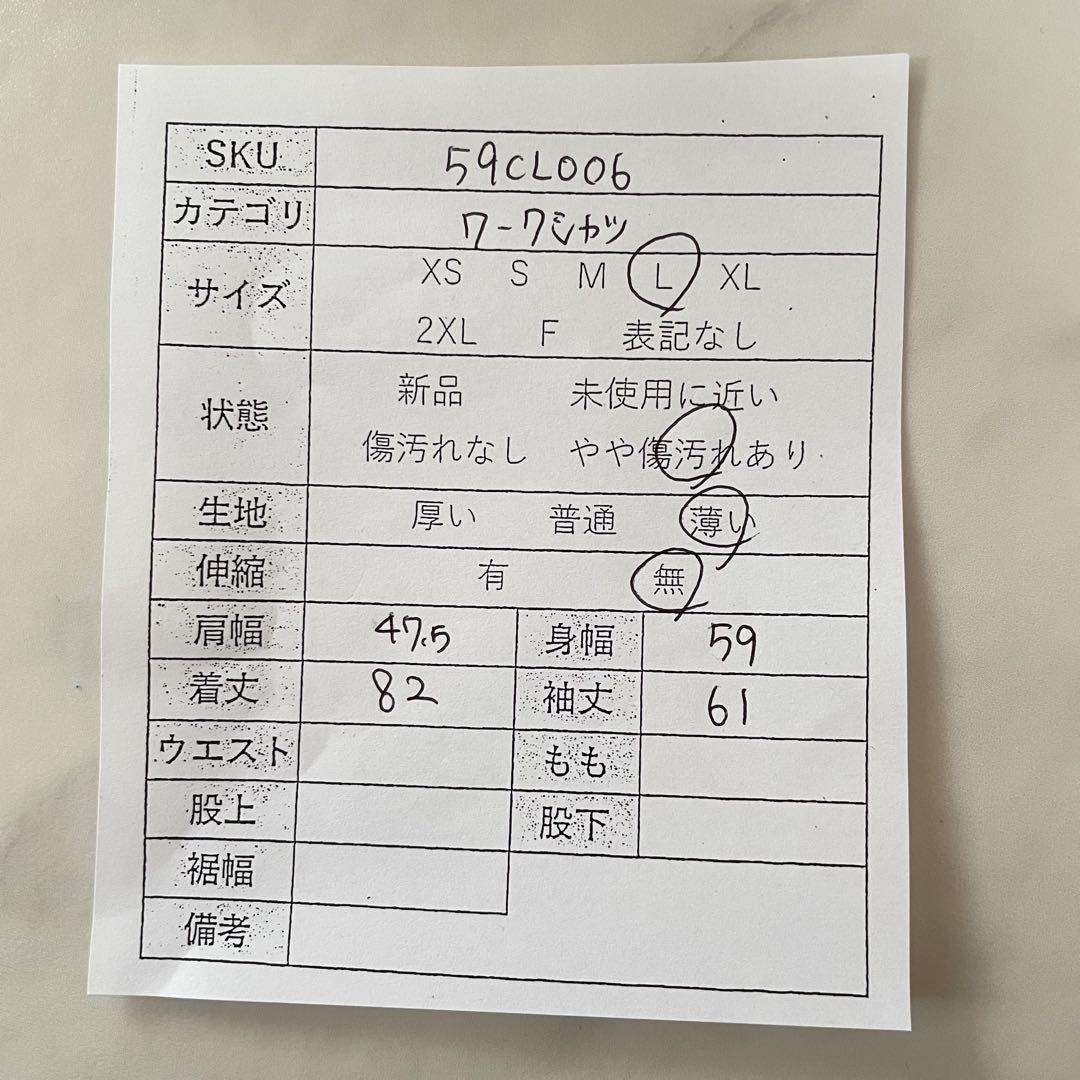 SKU 59CL006
カテゴリ ワークシャツ
サイズ XS S M L XL
2XL F 表記なし
状態 新品 未使用に近い
傷汚れなし やや傷汚れあり
生地 厚い 普通 薄い
伸縮 有 無
肩幅 47.5 身幅 59
着丈 82 袖丈 61
ウエスト もも
股上 股下
裾幅
備考